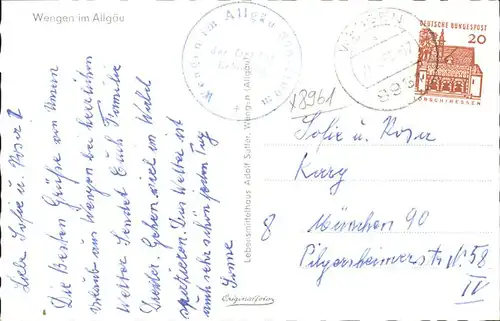 Wengen im Allgäu
Liebe Sofie u. Rosa!
Die Besten Grüße von Unserm
Urlaub aus Wengen bei herrlichen
Wetter Sendet Euch Familie
Dreiler. Gehen viel im Wald
spatzieren. Das Wetter ist
auch sehr schön jeden Tag
Sonne
Originalfoto
Lebensmittelhaus Adolf Sutter, Wengen (Allgäu)
Wengen im Allgäu
DEUTSCHE BUNDESPOST
20
LORSCH/HESSEN
8961
Sofie u. Rosa
Karg
8 München 90
Pilgersheimerstr. No. 58
IV